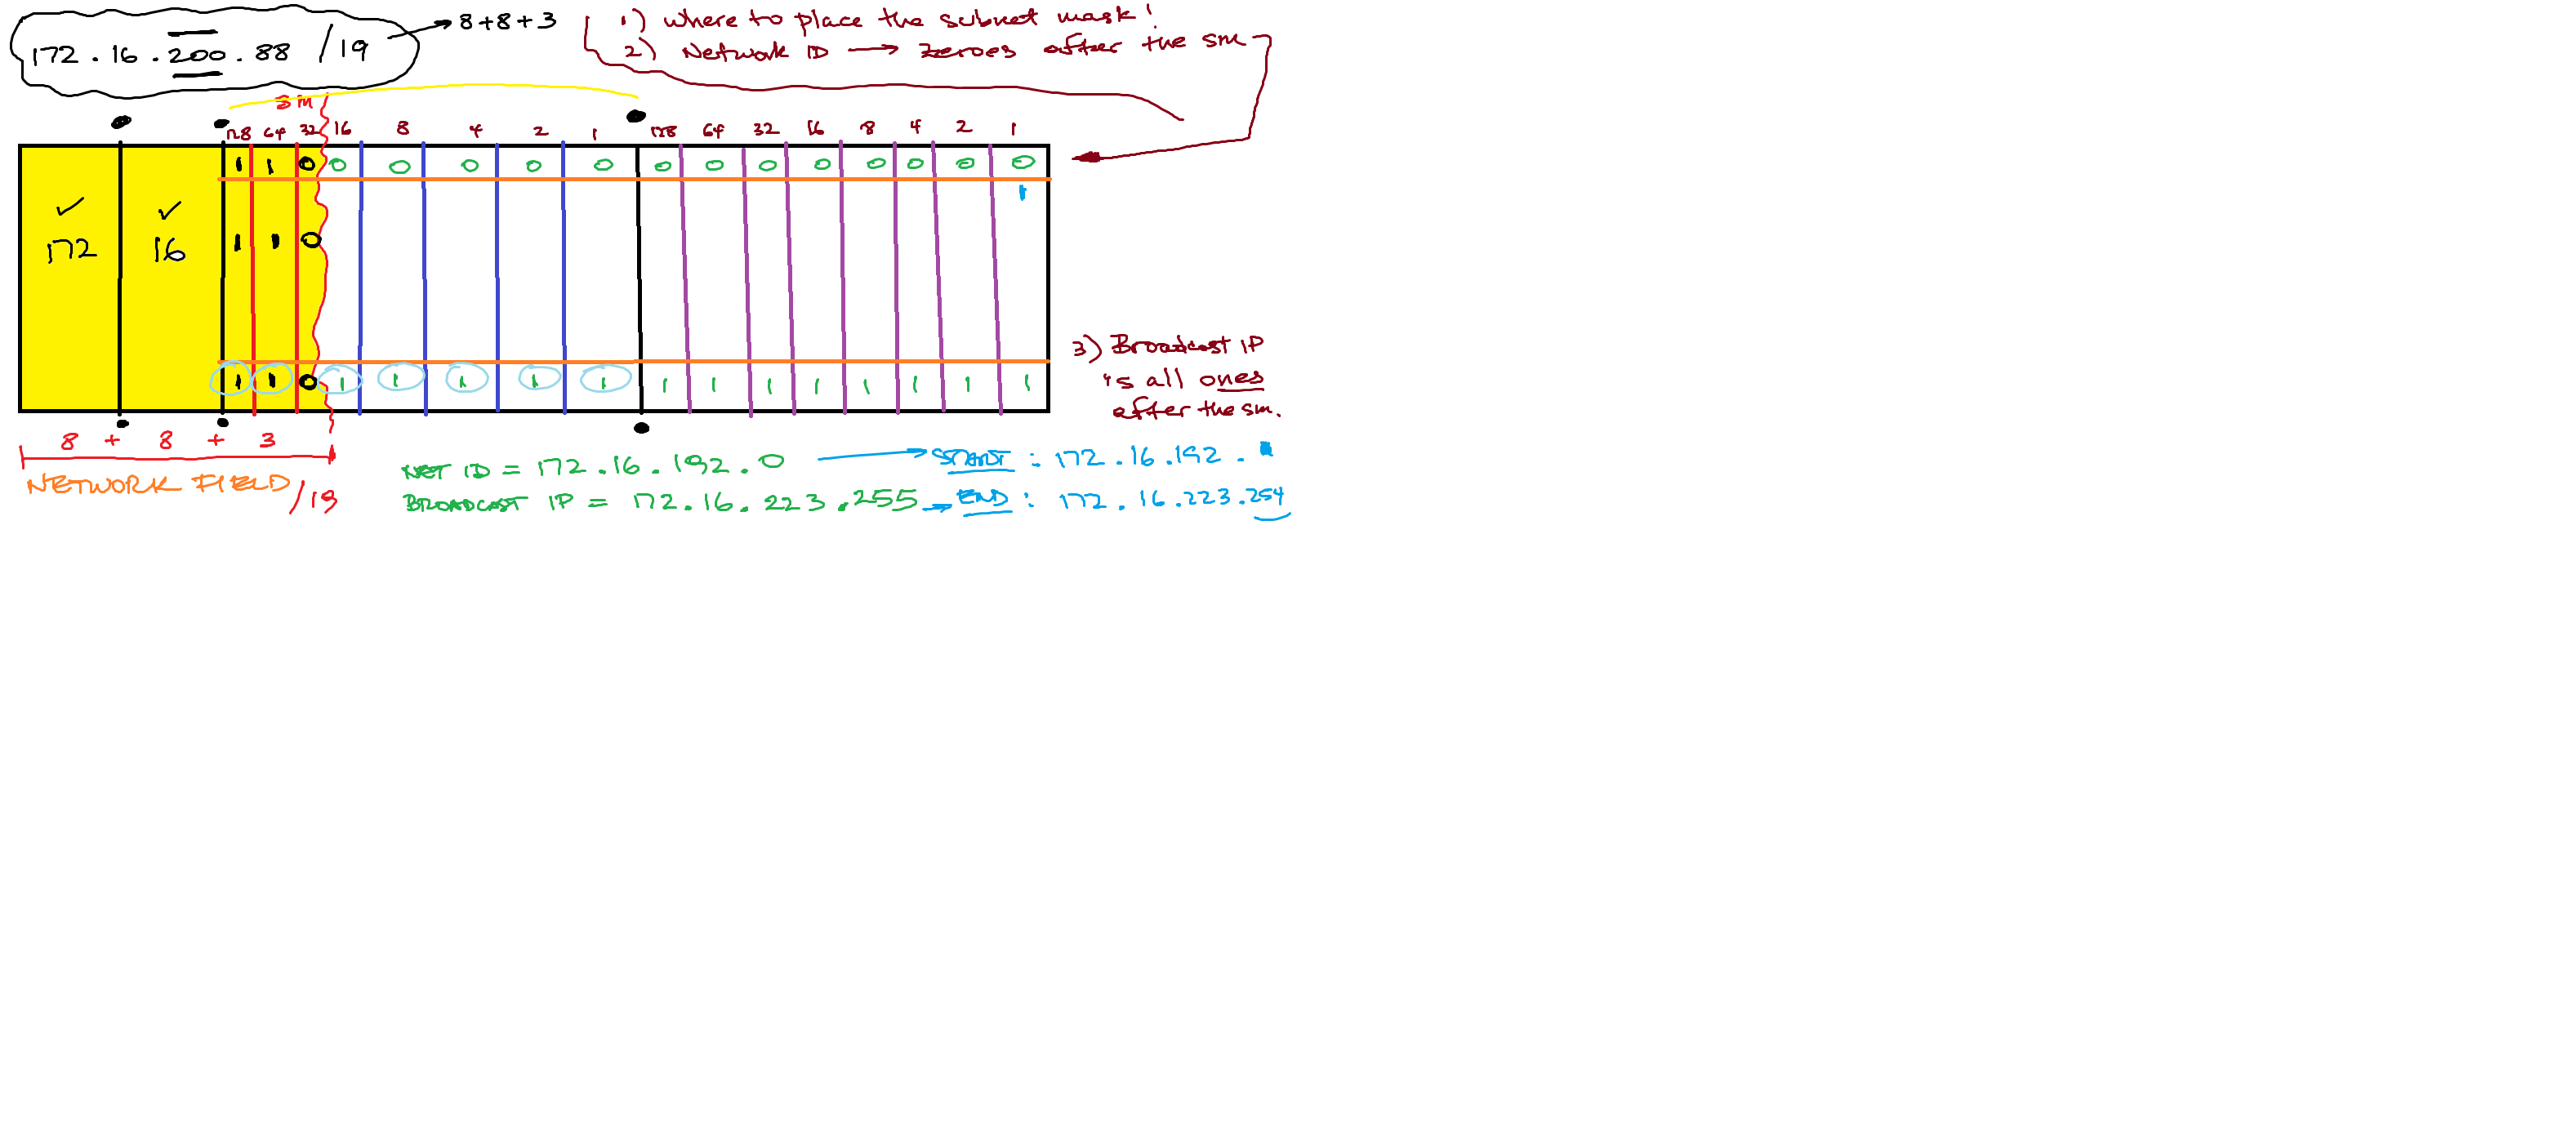 172.16.200.88 /19 → 8+8+3
1) where to place the subnet mask!
2) Network ID → zeroes after the sm
sm
128 64 32 16 8 4 2 1 128 64 32 16 8 4 2 1
1 1 0 0 0 0 0 0 0 0 0 0 0 0 0 0
1
✓ ✓
172 16 1 1 0
3) Broadcast IP
is all ones
after the sm.
1 1 0 1 1 1 1 1 1 1 1 1 1 1 1 1
8 + 8 + 3
NETWORK FIELD /19
NET ID = 172.16.192.0 → START : 172.16.192.
BROADCAST IP = 172.16.223.255 → END : 172.16.223.254